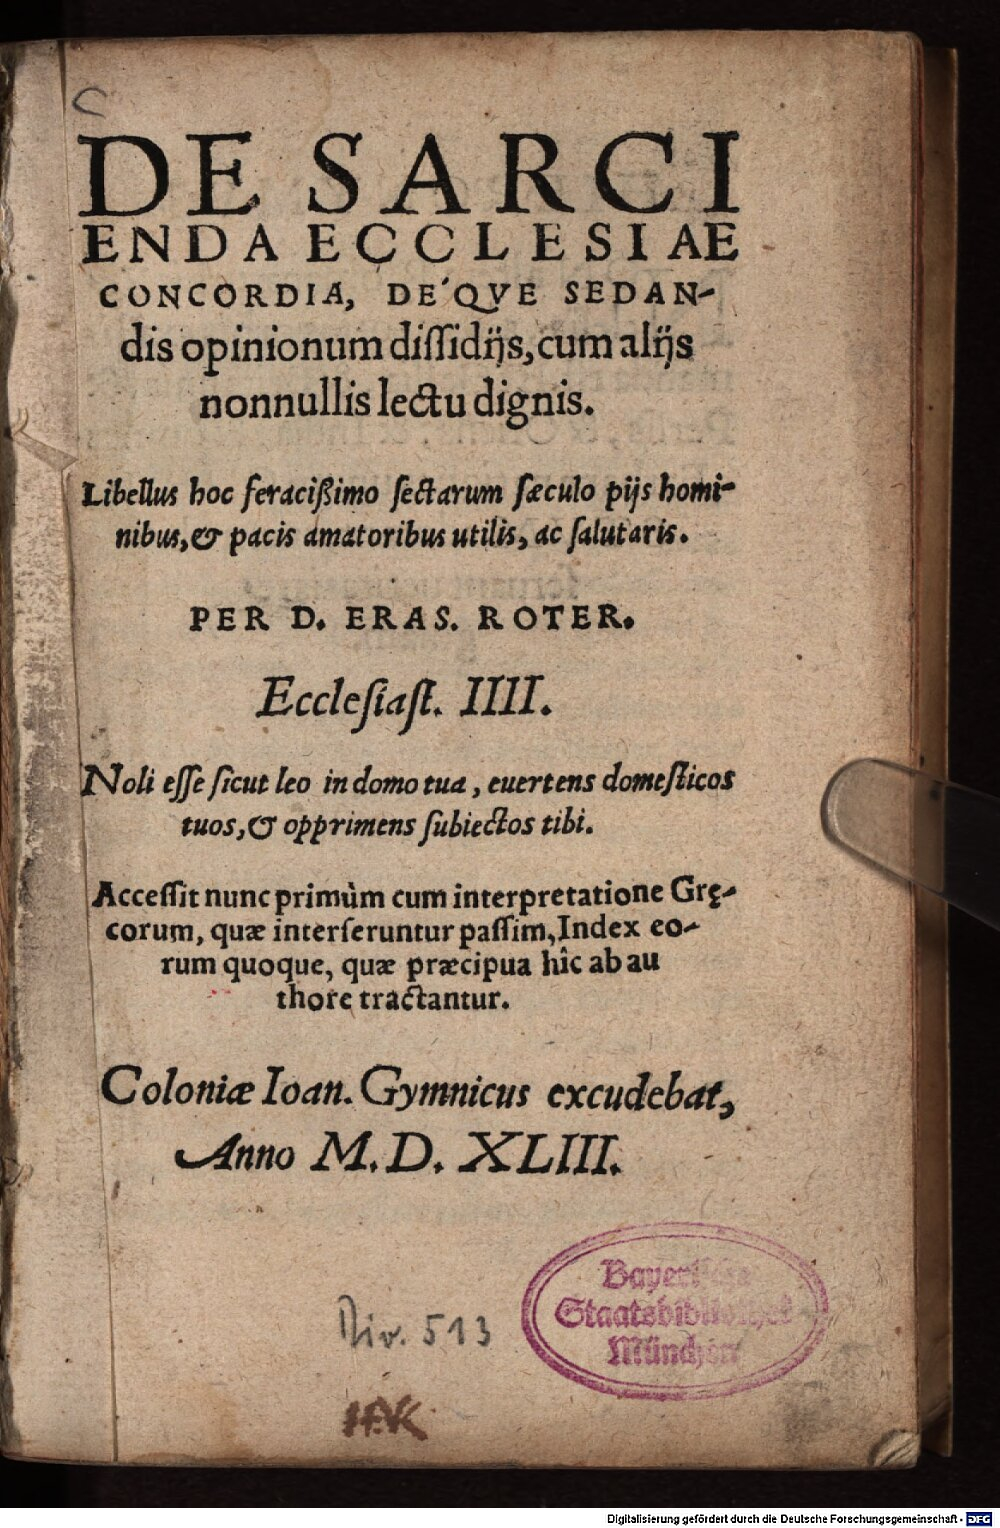 C
DE SARCI
ENDA ECCLESIAE
CONCORDIA, DE'QVE SEDAN-
dis opinionum dissidijs, cum alijs
nonnullis lectu dignis.
Libellus hoc feracißimo sectarum sæculo pijs homi-
nibus, & pacis amatoribus utilis, ac salutaris.
PER D. ERAS. ROTER.
Ecclesiast. IIII.
Noli esse sicut leo in domo tua, euertens domesticos
tuos, & opprimens subiectos tibi.
Accessit nunc primùm cum interpretatione Grę-
corum, quæ interseruntur passim, Index eo-
rum quoque, quæ præcipua hîc ab au
thore tractantur.
Coloniæ Ioan. Gymnicus excudebat,
Anno M. D. XLIII.
Bayerische
Staatsbibliothek
München
Div. 513
HAK
Digitalisierung gefördert durch die Deutsche Forschungsgemeinschaft - DFG